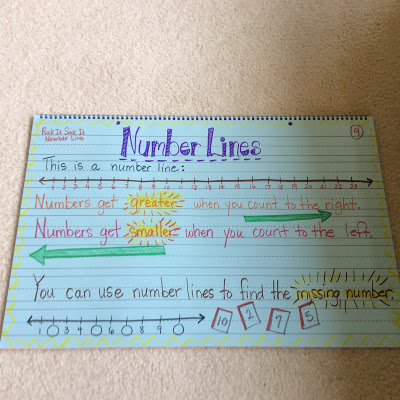 Rock It Sock It
Number Line
9
Number Lines
This is a number line:
1 2 3 4 5 6 7 8 9 10 11 12 13 14 15 16 17 18 19 20 21 22 23
Numbers get greater when you count to the right.
Numbers get smaller when you count to the left.
You can use number lines to find the missing number.
1 3 4 6 8 9
10 2 7 5